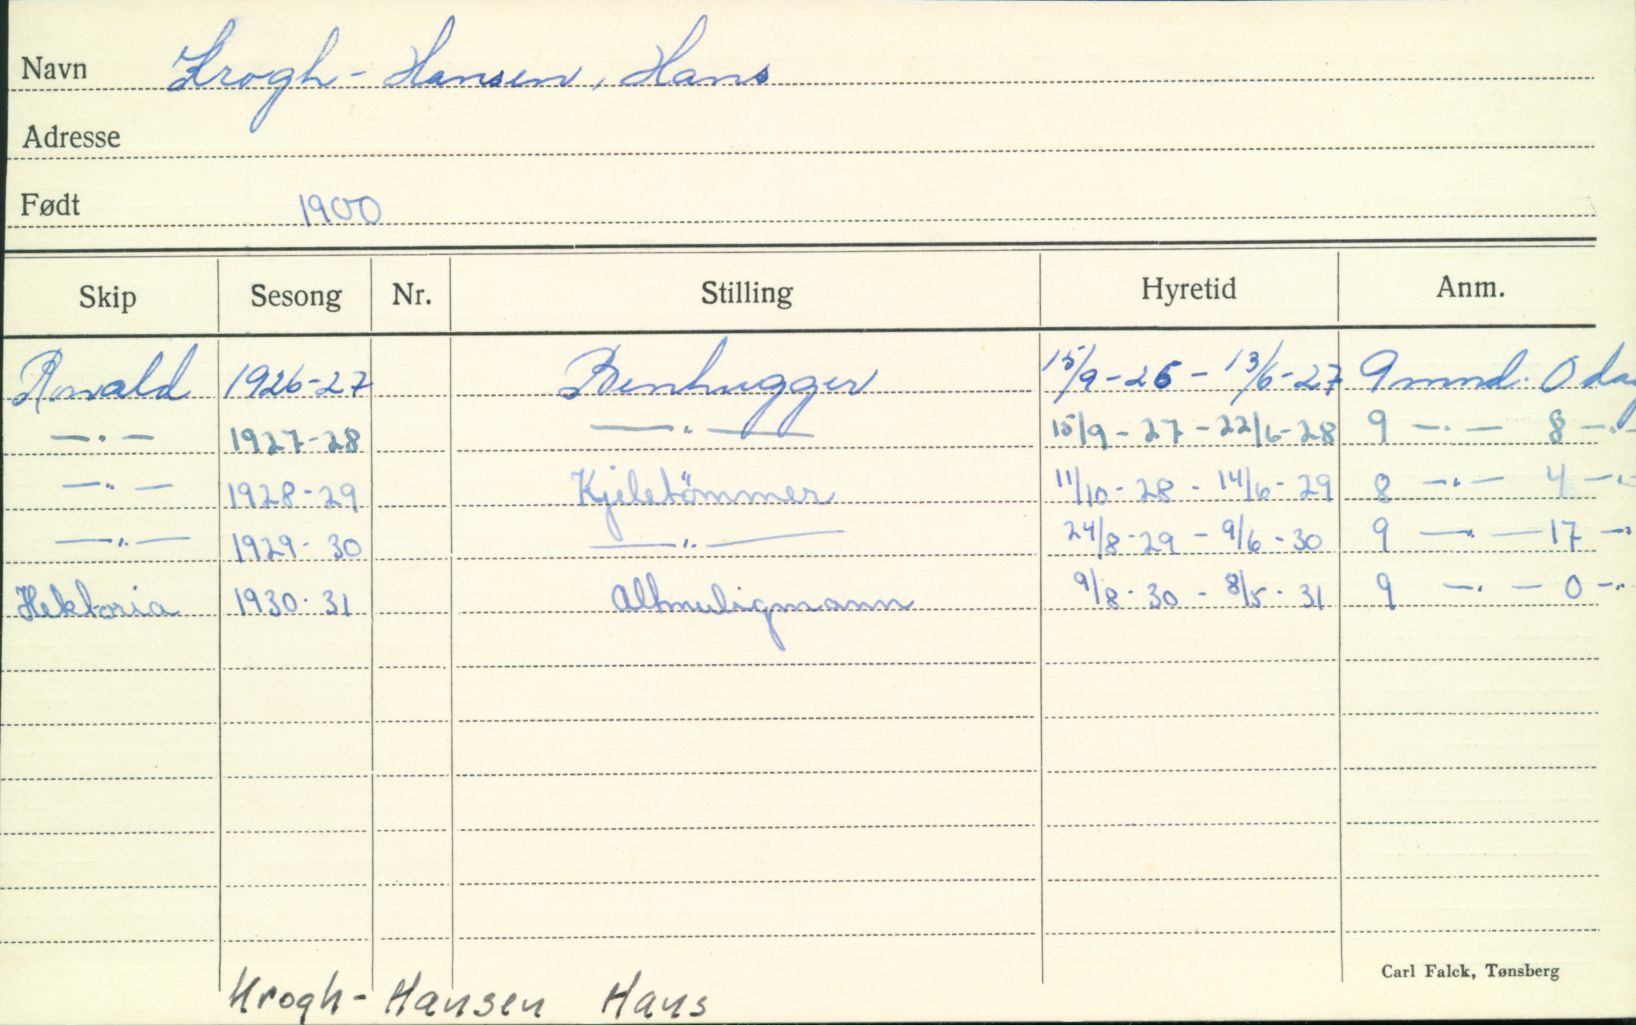 Navn Krogh-Hansen, Hans
Adresse
Født 1900
Skip Sesong Nr. Stilling Hyretid Anm.
Ronald 1926-27 Benhugger 15/9-26 - 13/6-27 9 mnd. 0 dag
—.— 1927-28 —.— 15/9-27 - 22/6-28 9 —.— 8 —.—
—"— 1928-29 Kjeletömmer 11/10-28 - 14/6-29 8 —"— 4 —"—
—"— 1929-30 —"— 24/8-29 - 9/6-30 9 —"— 17 —"—
Hektoria 1930-31 Altmuligmann 9/8-30 - 8/5-31 9 —.— 0 —"—
Carl Falck, Tønsberg
Krogh-Hansen Hans